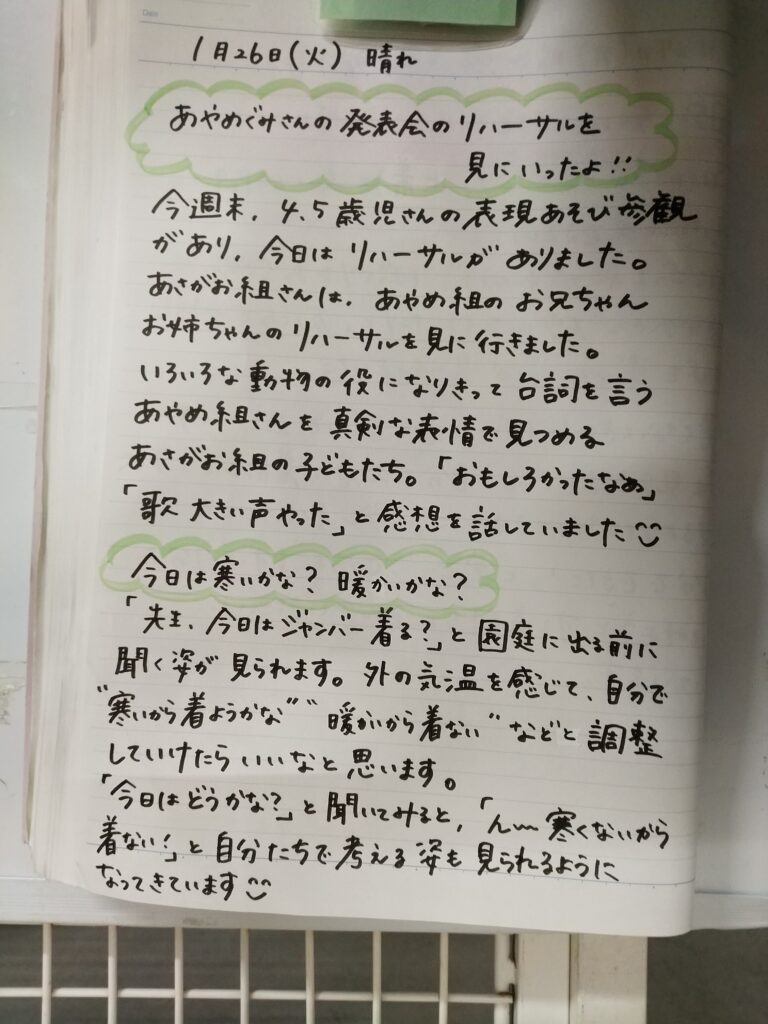 Date
1月26日(火) 晴れ
あやめぐみさんの発表会のリハーサルを
見にいったよ!!
今週末、4、5歳児さんの表現あそび参観
があり、今日はリハーサルがありました。
あさがお組さんは、あやめ組のお兄ちゃん
お姉ちゃんのリハーサルを見に行きました。
いろいろな動物の役になりきって台詞を言う
あやめ組さんを真剣な表情で見つめる
あさがお組の子どもたち。「おもしろかったなぁ」
「歌大きい声やった」と感想を話していました
今日は寒いかな? 暖かいかな?
「先生、今日はジャンバー着る?」と園庭に出る前に
聞く姿が見られます。外の気温を感じて、自分で
"寒いから着ようかな" "暖かいから着ない"などと調整
していけたらいいなと思います。
「今日はどうかな?」と聞いてみると、「ん〜寒くないから
着ない!」と自分たちで考える姿も見られるように
なってきています